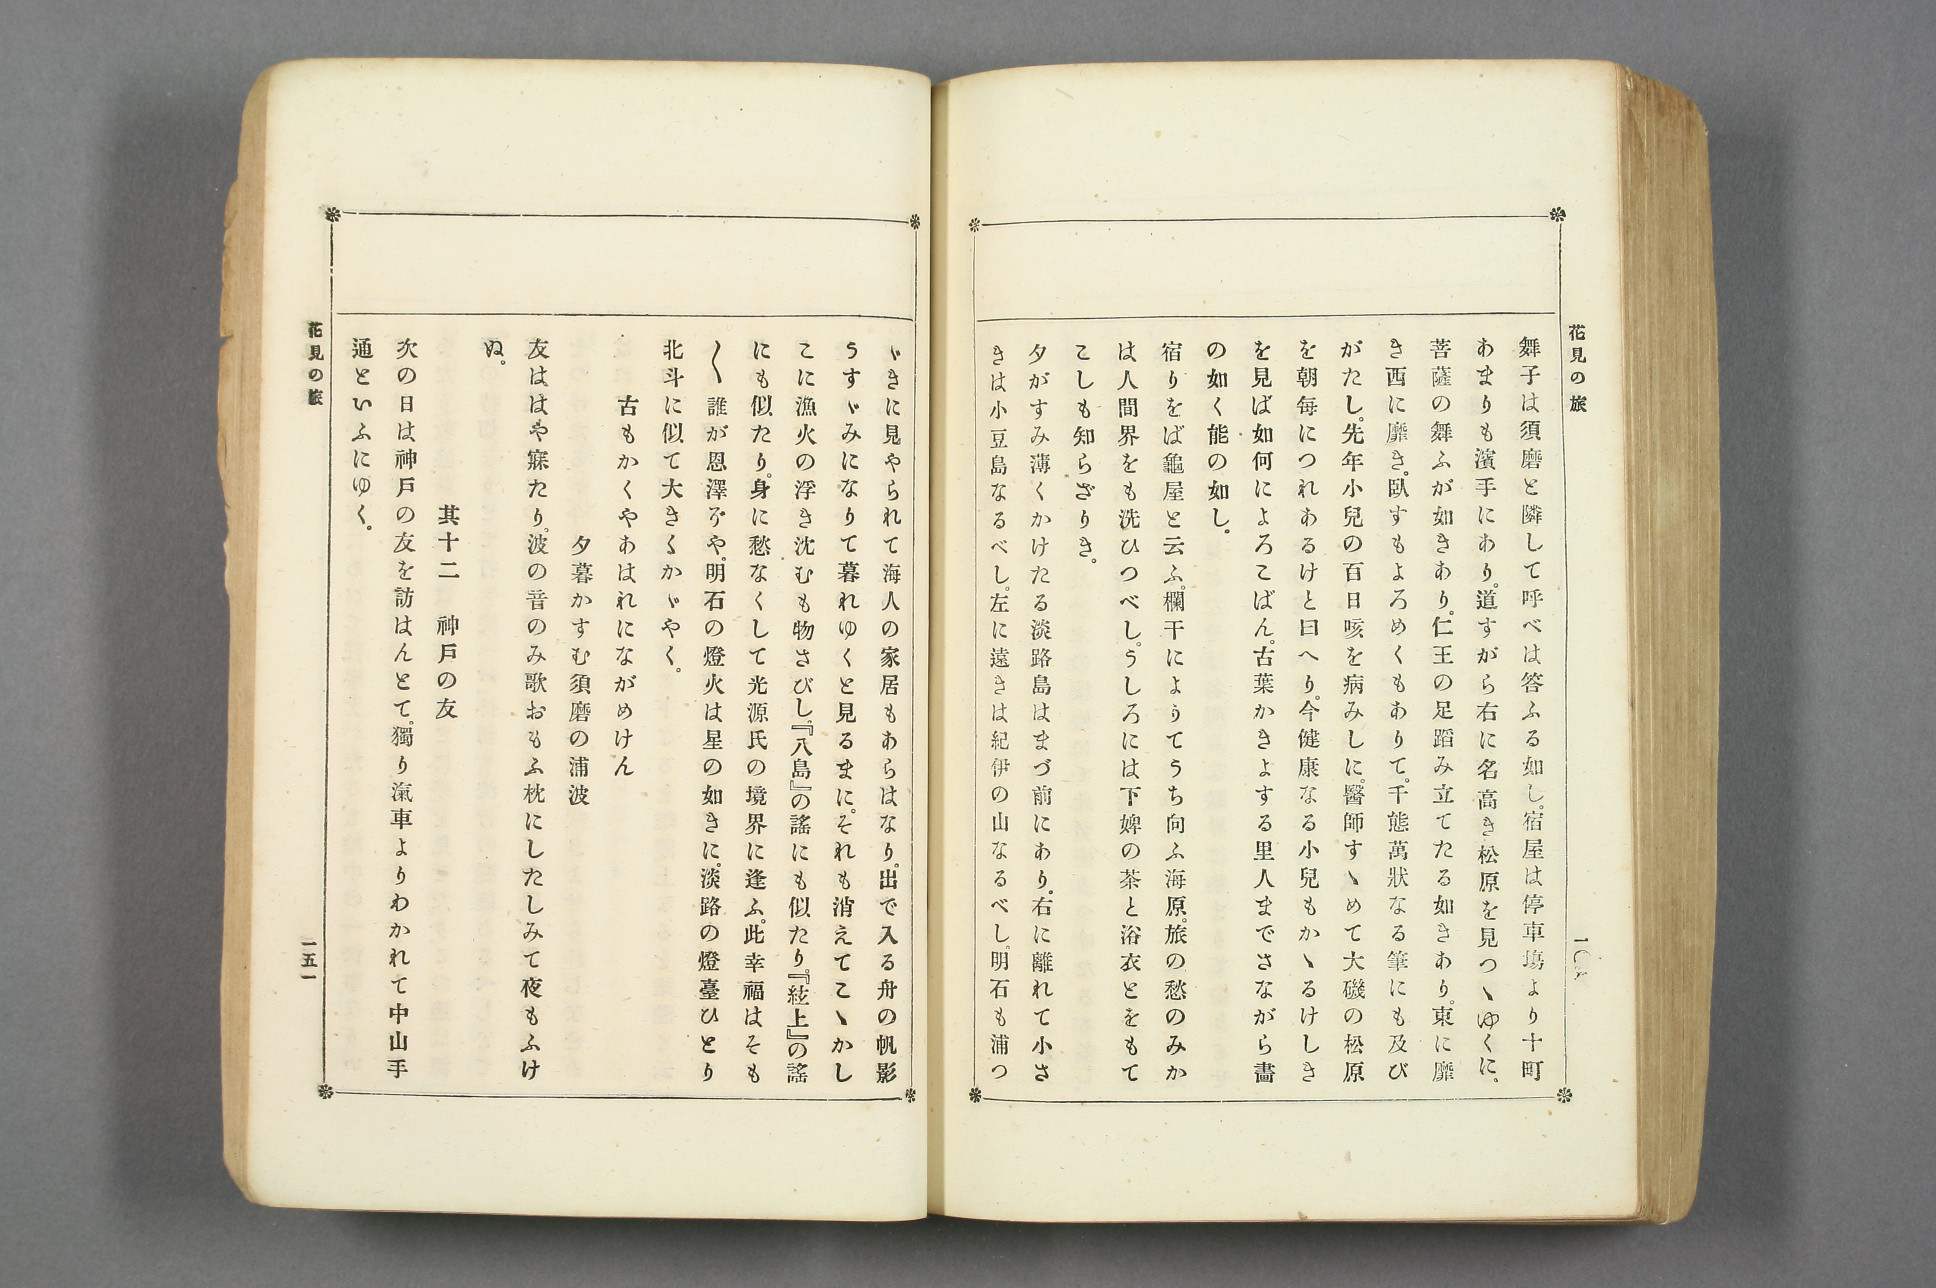 花見の旅
舞子は須磨と隣して呼べは答ふる如し。宿屋は停車塲より十町
あまりも濱手にあり。道すがら右に名高き松原を見つゝゆくに、
菩薩の舞ふが如きあり。仁王の足蹈み立てたる如きあり。東に靡
き西に靡き。臥すもよろめくもありて。千態萬狀なる筆にも及び
がたし。先年小兒の百日咳を病みしに。醫師すゝめて大磯の松原
を朝每につれあるけと曰へり。今健康なる小兒もかゝるけしき
を見ば如何によろこばん。古葉かきよする里人までさながら畵
の如く能の如し。
宿りをば龜屋と云ふ。欄干によりてうち向ふ海原。旅の愁のみか
は人間界をも洗ひつべし。うしろには下婢の茶と浴衣とをもて
こしも知らざりき。
夕がすみ薄くかけたる淡路島はまづ前にあり。右に離れて小さ
きは小豆島なるべし。左に遠きは紀伊の山なるべし。明石も浦つ
ゞきに見やられて海人の家居もあらはなり。出で入る舟の帆影
うすゞみになりて暮れゆくと見るまに。それも消えてこゝかし
こに漁火の浮き沈むも物さびし。『八島』の謠にも似たり。『絃上』の謠
にも似たり。身に愁なくして光源氏の境界に逢ふ。此幸福はそも
〳〵誰が恩澤ぞや。明石の燈火は星の如きに。淡路の燈臺ひとり
北斗に似て大きくかゞやく。
古もかくやあはれにながめけん
夕暮かすむ須磨の浦波
友ははや寐たり。波の音のみ歌おもふ枕にしたしみて夜もふけ
ぬ。
其十二　神戸の友
次の日は神戸の友を訪はんとて。獨り滊車よりわかれて中山手
通といふにゆく。
花見の旅
一五一